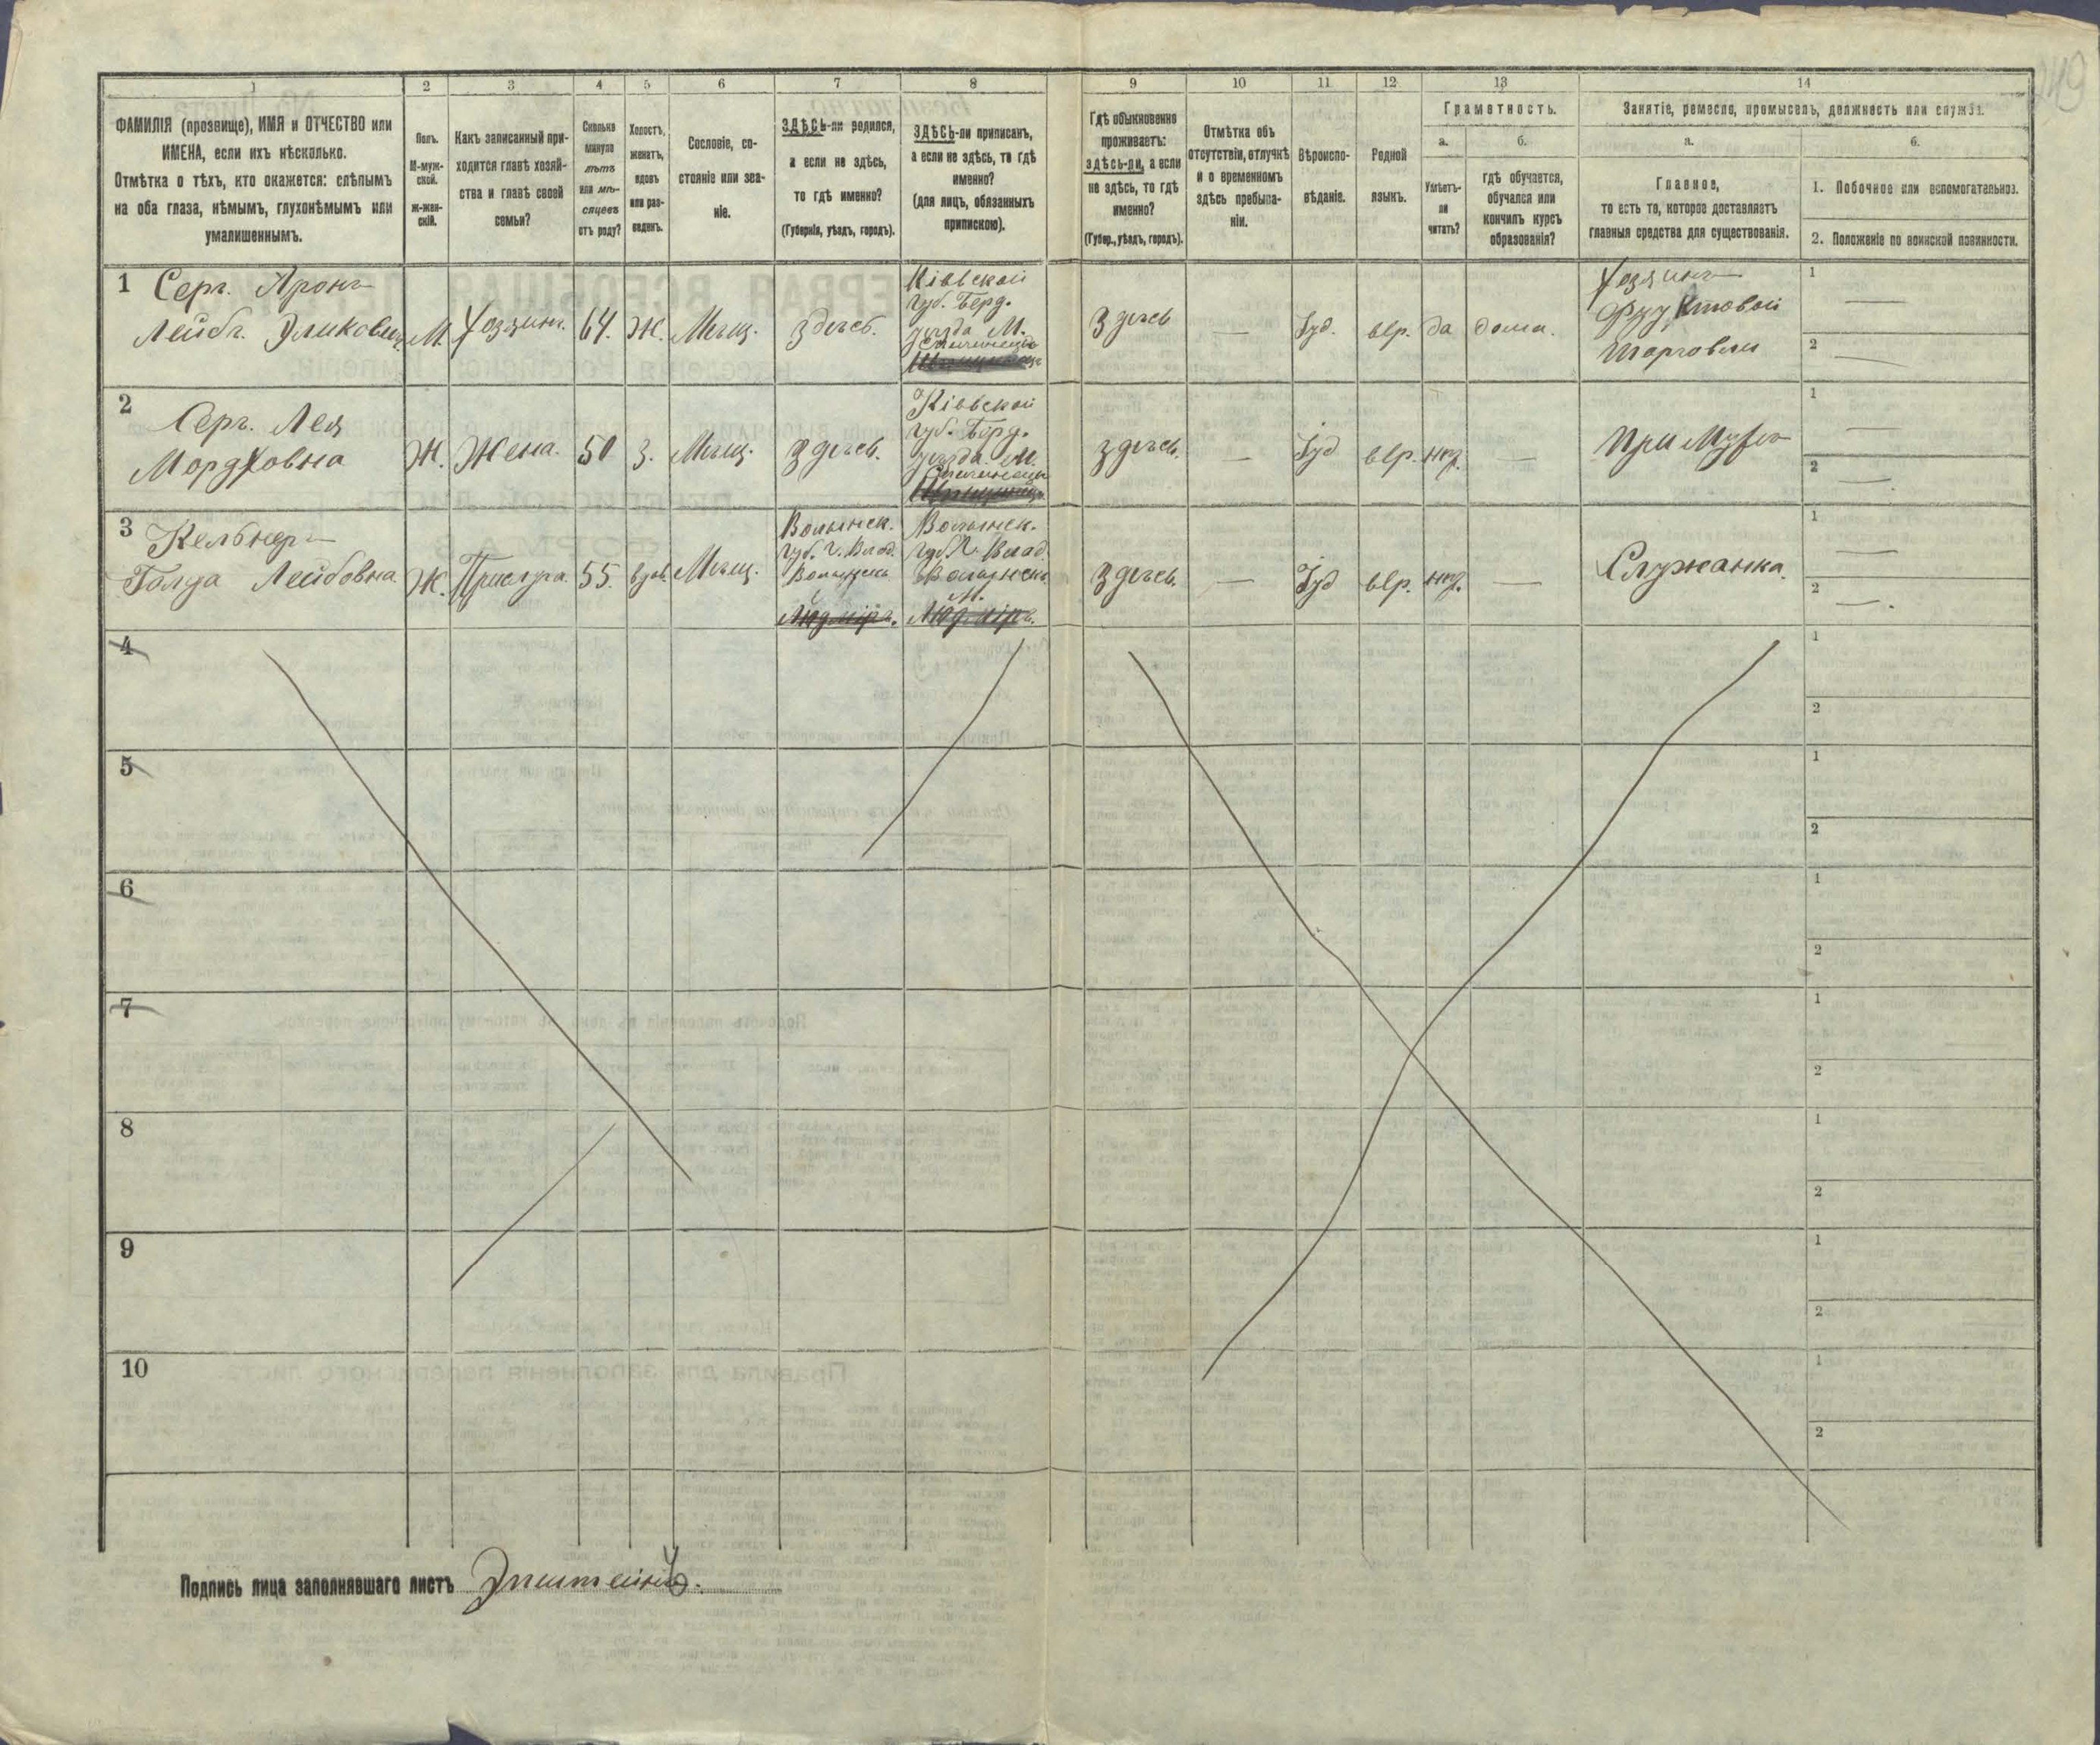 149
1
2
3
4
5
6
7
8
9
10
11
12
13
14
ФАМИЛІЯ (прозвище), ИМЯ и ОТЧЕСТВО или
ИМЕНА, если ихъ нѣсколько.
Отмѣтка о тѣхъ, кто окажется: слѣпымъ
на оба глаза, нѣмымъ, глухонѣмымъ или
умалишеннымъ.
Полъ.
М-муж-
ской.
Ж-жен-
скій.
Какъ записанный при-
ходится главѣ хозяй-
ства и главѣ своей
семьи?
Сколько
минуло
лѣтъ
или мѣ-
сяцевъ
отъ роду?
Холостъ,
женатъ,
вдовъ
или раз-
веденъ.
Сословіе, со-
стояніе или зва-
ніе.
ЗДѢСЬ-ли родился,
а если не здѣсь,
то гдѣ именно?
(Губернія, уѣздъ, городъ).
ЗДѢСЬ-ли приписанъ,
а если не здѣсь, то гдѣ
именно?
(для лицъ, обязанныхъ
припискою).
Гдѣ обыкновенно
проживаетъ:
здѣсь-ли, а если
не здѣсь, то гдѣ
именно?
(Губер., уѣздъ, городъ).
Отмѣтка объ
отсутствіи, отлучкѣ
и о временномъ
здѣсь пребыва-
ніи.
Вѣроиспо-
вѣданіе.
Родной
языкъ.
Грамотность.
а.
Умѣетъ-
ли
читать?
б.
гдѣ обучается,
обучался или
кончилъ курсъ
образованія?
Занятіе, ремесло, промыселъ, должность или служба.
а.
Главное,
то есть то, которое доставляетъ
главныя средства для существованія.
б.
1. Побочное или вспомогательное.
2. Положеніе по воинской повинности.
1
Серъ. Аронъ
Лейбъ. Эликовичъ
М.
Хозяинъ.
64.
Ж.
Мѣщ.
Здѣсь.
Кіевской
губ. Берд.
уѣзда М.
Здѣсь
—
Іуд.
евр.
да
дома.
Хозяинъ
Фруктовой
торговли
1
—
2
—
2
Серъ. Лея
Мордковна
Ж.
Жена.
50
З.
Мѣщ.
Здѣсь.
Кіевской
губ. Берд.
уѣзда М.
Здѣсь.
—
Іуд
евр.
нѣт.
—
При Мужѣ
1
—
2
—.
3
Кельнеръ
Голда Лейбовна
Ж.
Прислуга.
55.
вдов.
Мѣщ.
Волынск.
губ. г. Влад.
Волынскъ
Волынск.
губ. г. Влад
Волынскъ
Здѣсь.
—
Іуд
евр.
нѣт.
—
Служанка.
1
—
2
—.
4
1
2
5
1
2
6
1
2
7
1
2
8
1
2
9
1
2
10
1
2
Подпись лица заполнявшаго листъ Эпштейнъ.